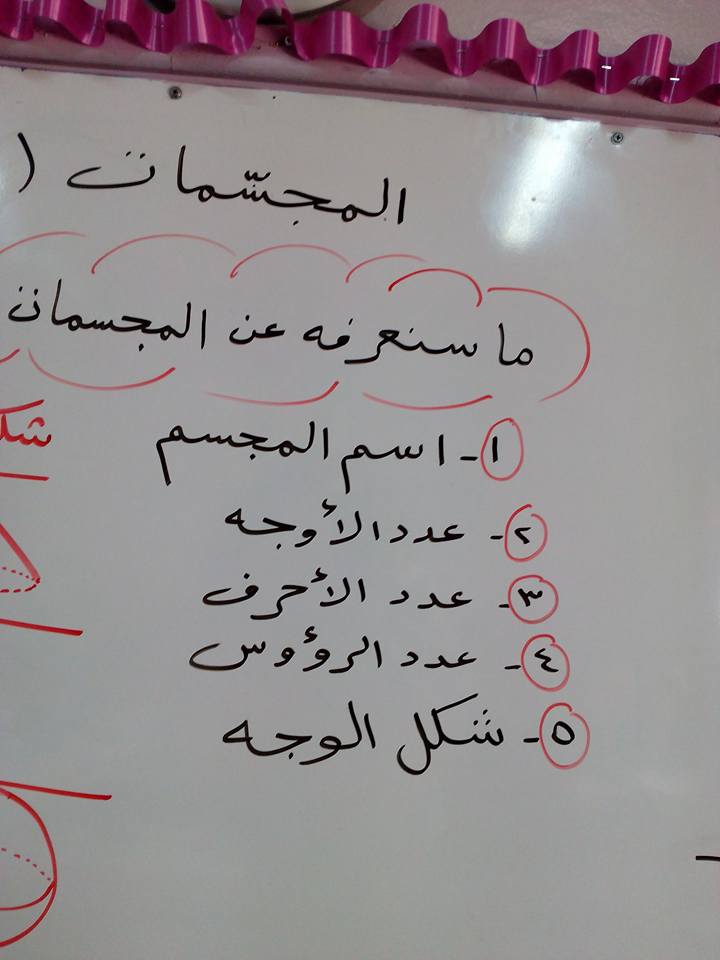 المجسّمات (
ما سنعرفه عن المجسمات
١- اسم المجسم
٢- عدد الأوجه
٣- عدد الأحرف
٤- عدد الرؤوس
٥- شكل الوجه